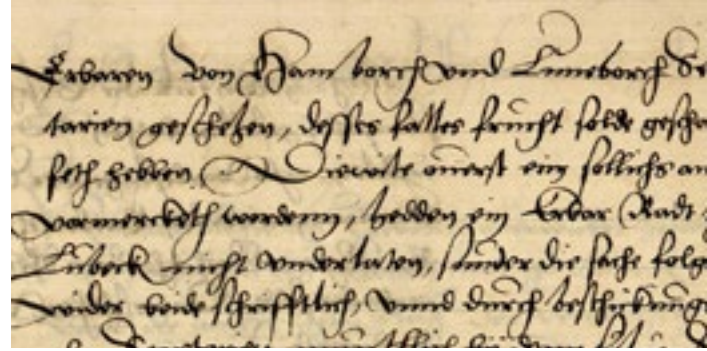 Erbaren von Hamborch vnd Luneborch Se
tarien geschehen, desses falles frucht solde gescha
feth hebben. Diewile auerst ein sollichs an
vormercketh worden, hedden ein Erbar Radt
Lubeck nicht vnderlaten, sunder die sache folg
wider beide schrifftlich, vnnd durch beschickung